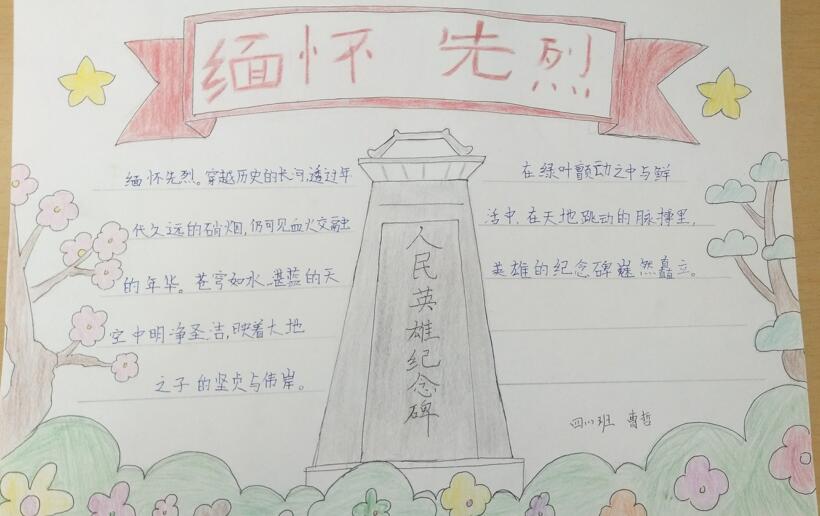 缅怀 先烈
缅怀先烈。穿越历史的长河,透过年
代久远的硝烟,仍可见血火交融
的年华。苍穹如水,湛蓝的天
空中明净圣洁,映着大地
之子的坚贞与伟岸。
人民英雄纪念碑
在绿叶颤动之中与鲜
活中,在天地跳动的脉搏里,
英雄的纪念碑巍然矗立。
四(1)班 曹哲